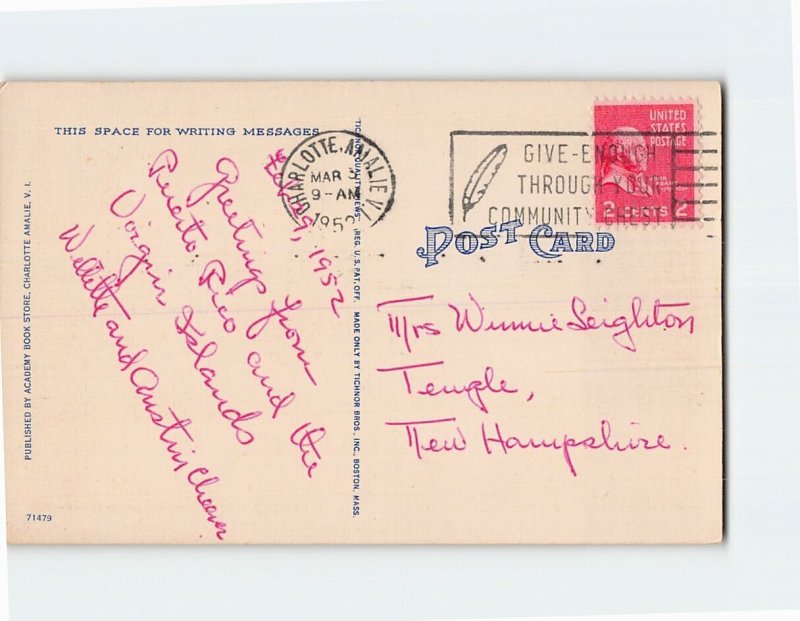 THIS SPACE FOR WRITING MESSAGES
Feb 29, 1952
Greetings from
Puerto Rico and the
Virgin Islands
and Austin Cheever
PUBLISHED BY ACADEMY BOOK STORE, CHARLOTTE AMALIE, V. I.
71479
TICHNOR QUALITY VIEWS, REG. U. S. PAT. OFF. MADE ONLY BY TICHNOR BROS., INC., BOSTON, MASS.
CHARLOTTE AMALIE V.I.
MAR 3
9-AM
1952
GIVE-ENOUGH
THROUGH YOUR
COMMUNITY CHEST
UNITED
STATES
POSTAGE
2 CENTS 2
POST CARD
Mrs Winnie Leighton
Temple,
New Hampshire.